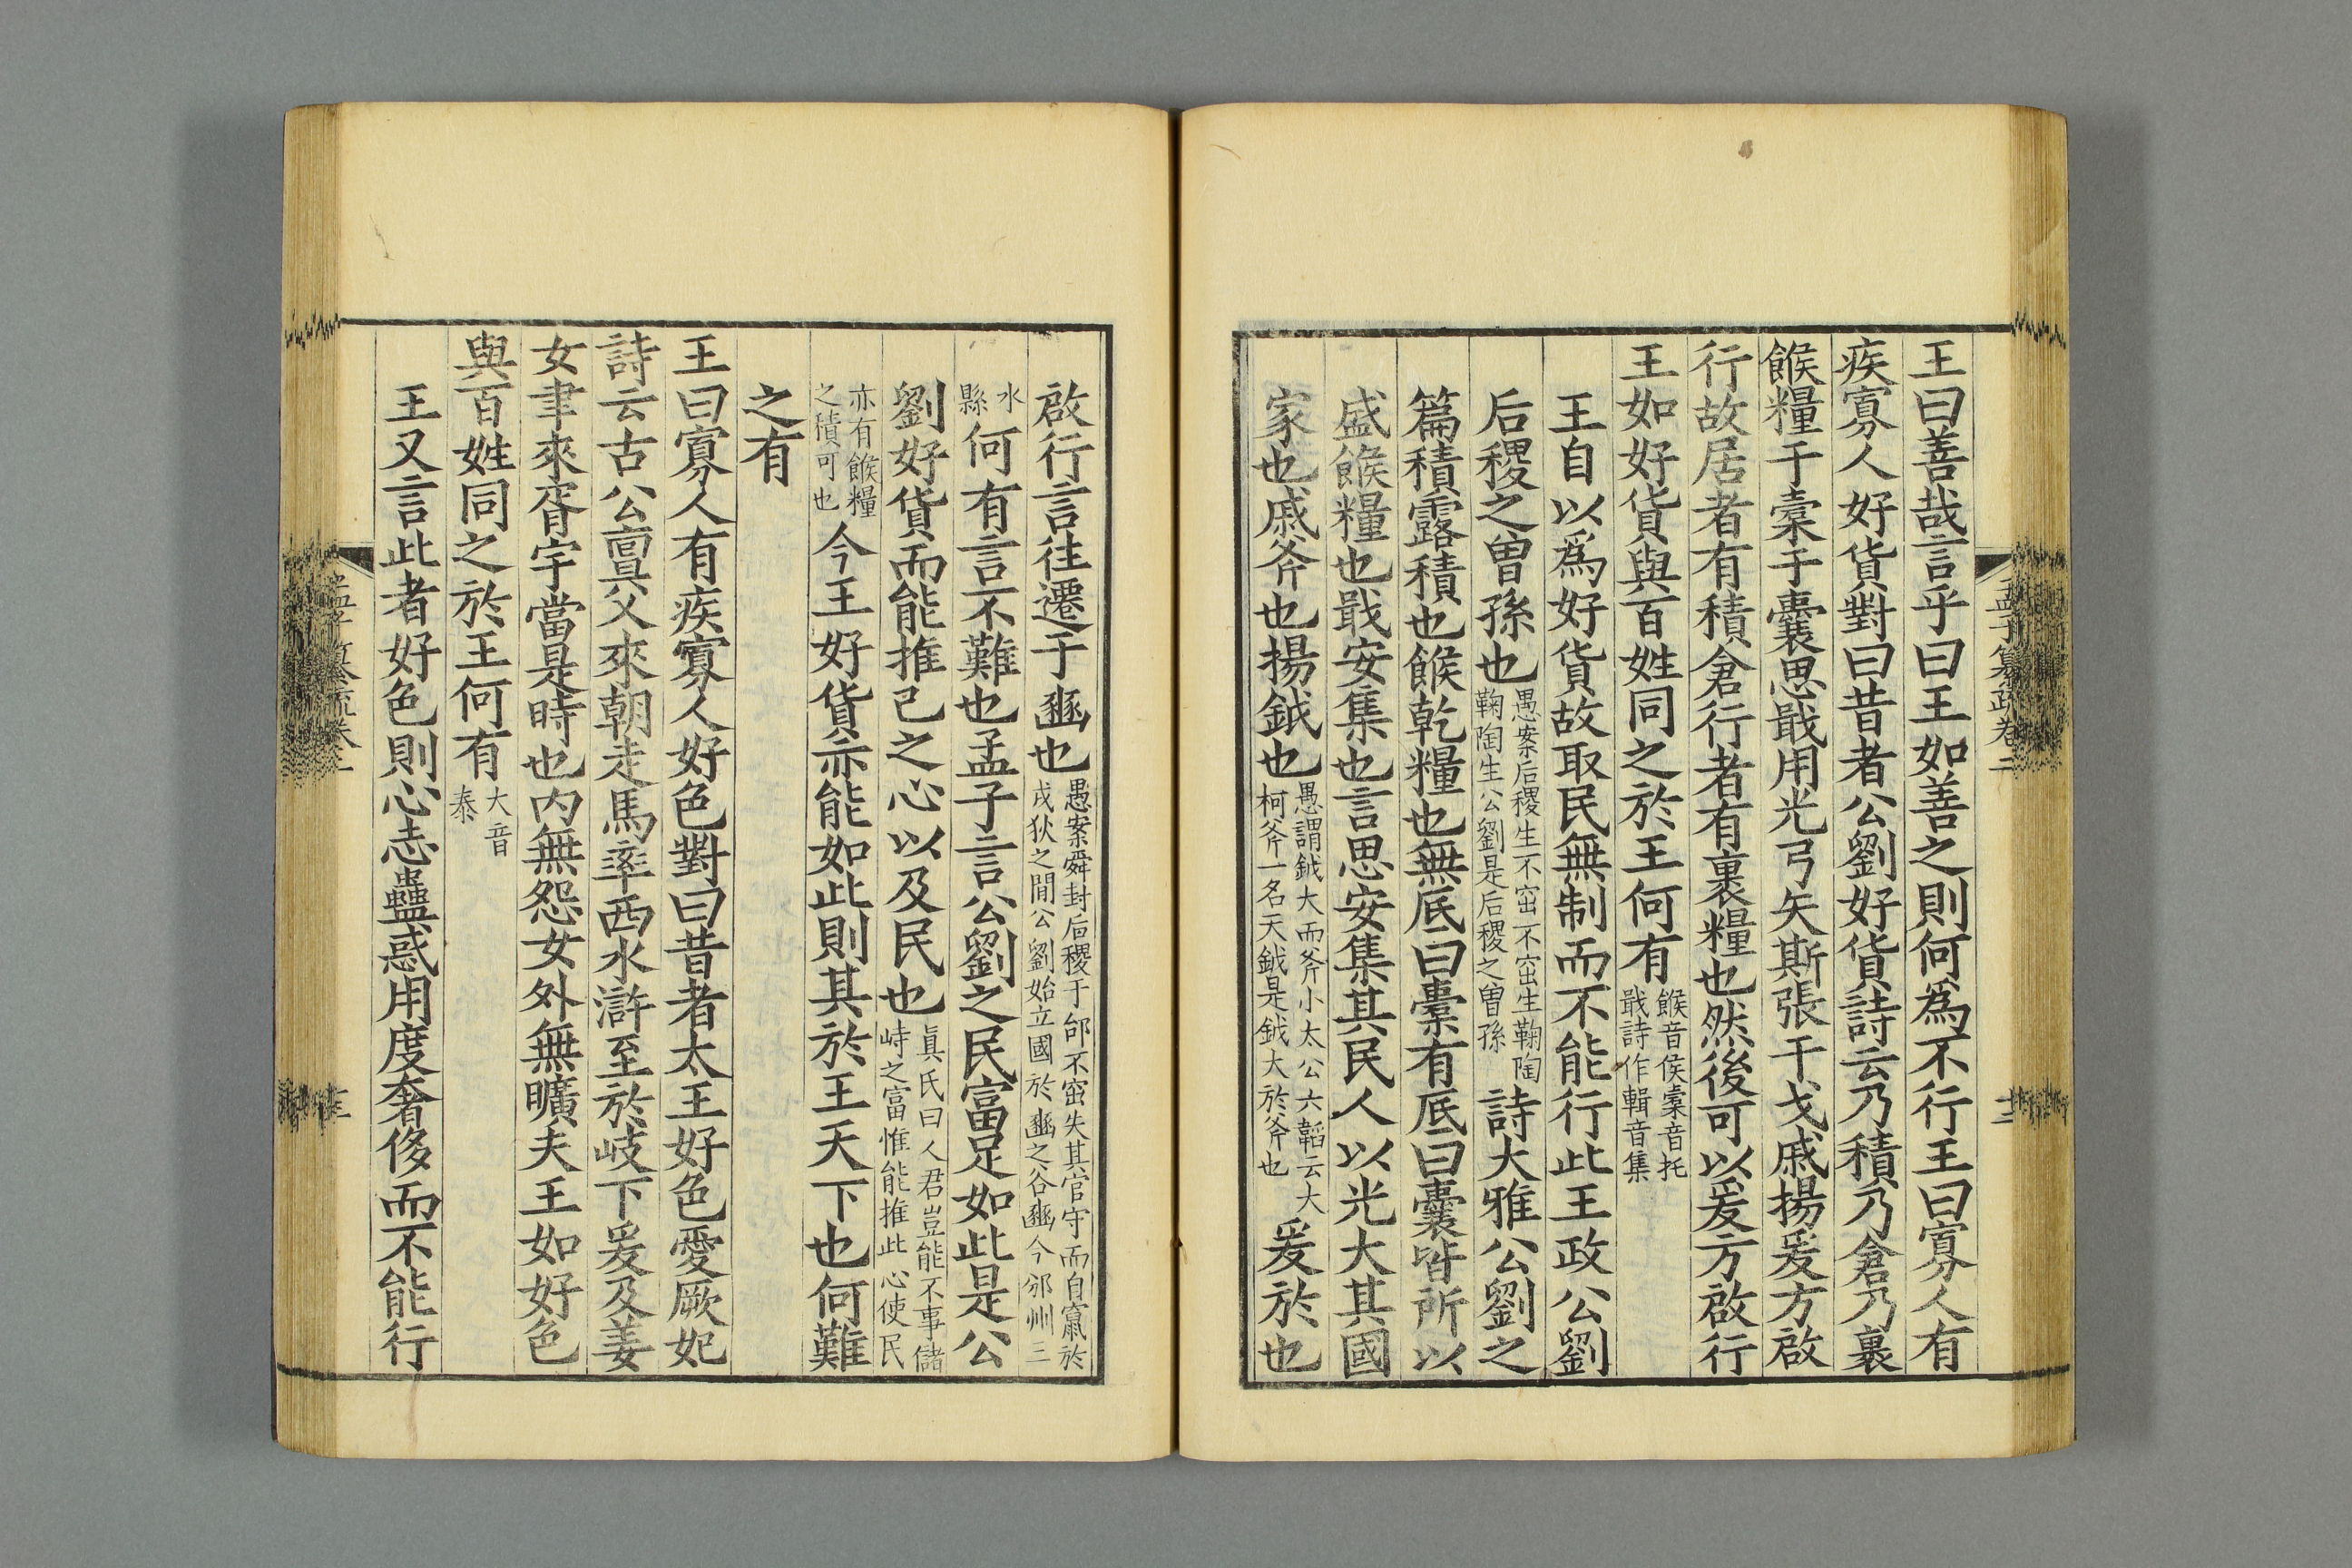 王曰善哉言乎曰王如善之則何爲不行王曰寡人有
疾寡人好貨對曰昔者公劉好貨詩云乃積乃倉乃裹
餱糧于橐于囊思戢用光弓矢斯張干戈戚揚爰方啟
行故居者有積倉行者有裹糧也然後可以爰方啟行
王如好貨與百姓同之於王何有餱音侯橐音托戢詩作輯音集
王自以爲好貨故取民無制而不能行此王政公劉
后稷之曾孫也愚案后稷生不窋不窋生鞠陶鞠陶生公劉是后稷之曾孫詩大雅公劉之
篇積露積也餱乾糧也無底曰橐有底曰囊皆所以
盛餱糧也戢安集也言思安集其民人以光大其國
家也戚斧也揚鉞也愚謂鉞大而斧小太公六韜云大柯斧一名天鉞是鉞大於斧也爰於也
孟子纂疏卷二
十二
啟行言往遷于豳也愚案舜封后稷于邰不窋失其官守而自竄於戎狄之間公劉始立國於豳之谷豳今邠州三
水縣何有言不難也孟子言公劉之民富足如此是公
劉好貨而能推己之心以及民也眞氏曰人君豈能不事儲峙之富惟能推此心使民
亦有餱糧之積可也今王好貨亦能如此則其於王天下也何難
之有
王曰寡人有疾寡人好色對曰昔者太王好色愛厥妃
詩云古公亶父來朝走馬率西水滸至於岐下爰及姜
女聿來胥宇當是時也内無怨女外無曠夫王如好色
與百姓同之於王何有大音泰
王又言此者好色則心志蠱惑用度奢侈而不能行
孟子纂疏卷二
十三